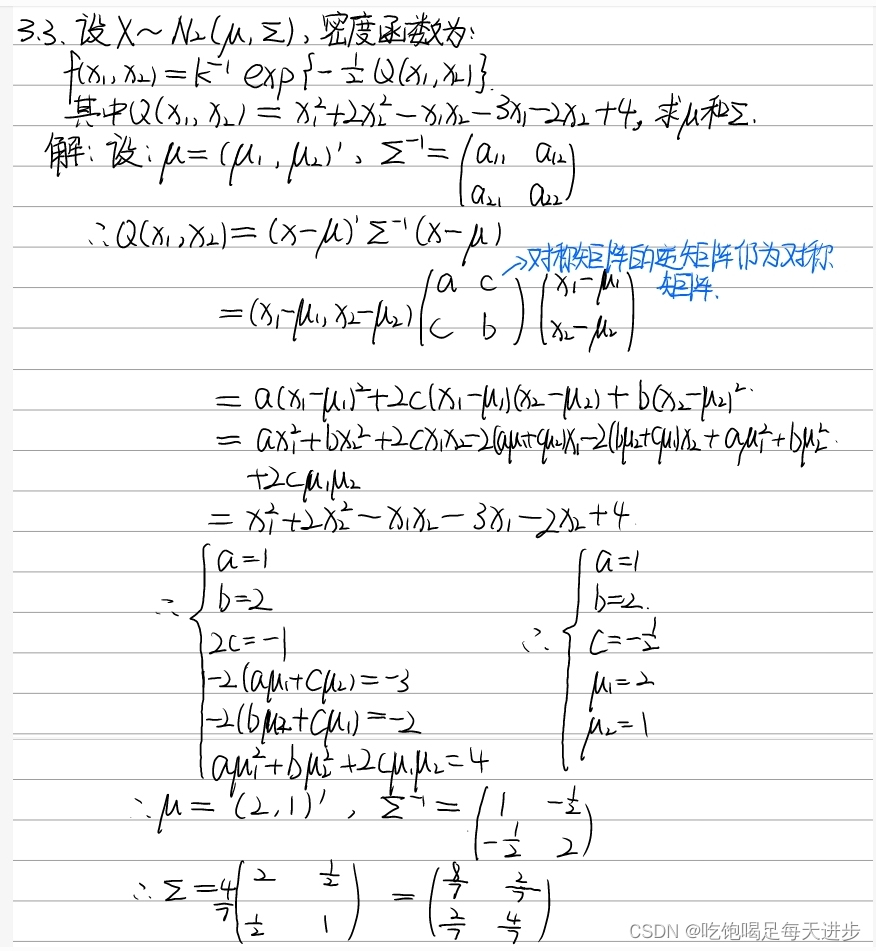 3.3. 设X~N₂(μ, Σ), 密度函数为:
f(x₁, x₂) = k⁻¹ exp{-½ Q(x₁, x₂)}.
其中Q(x₁, x₂) = x₁²+2x₂²-x₁x₂-3x₁-2x₂+4, 求μ和Σ.
解: 设: μ=(μ₁, μ₂)', Σ⁻¹= (a₁₁ a₁₂
a₂₁ a₂₂)
∴Q(x₁, x₂) = (x-μ)' Σ⁻¹ (x-μ)
→对称矩阵的逆矩阵仍为对称
矩阵.
= (x₁-μ₁, x₂-μ₂) (a c
c b) (x₁-μ₁
x₂-μ₂)
= a(x₁-μ₁)²+2c(x₁-μ₁)(x₂-μ₂)+b(x₂-μ₂)².
= ax₁²+bx₂²+2cx₁x₂-2(aμ₁+cμ₂)x₁-2(bμ₂+cμ₁)x₂+aμ₁²+bμ₂².
+2cμ₁μ₂
= x₁²+2x₂²-x₁x₂-3x₁-2x₂+4.
∴ { a=1
b=2
2c=-1
-2(aμ₁+cμ₂)=-3
-2(bμ₂+cμ₁)=-2
aμ₁²+bμ₂²+2cμ₁μ₂=4
∴ { a=1
b=2.
c=-½
μ₁=2
μ₂=1
∴μ = (2,1)', Σ⁻¹ = (1 -½
-½ 2)
∴Σ = 4/7 (2 ½
½ 1) = (8/7 2/7
2/7 4/7)
CSDN @吃饱喝足每天进步